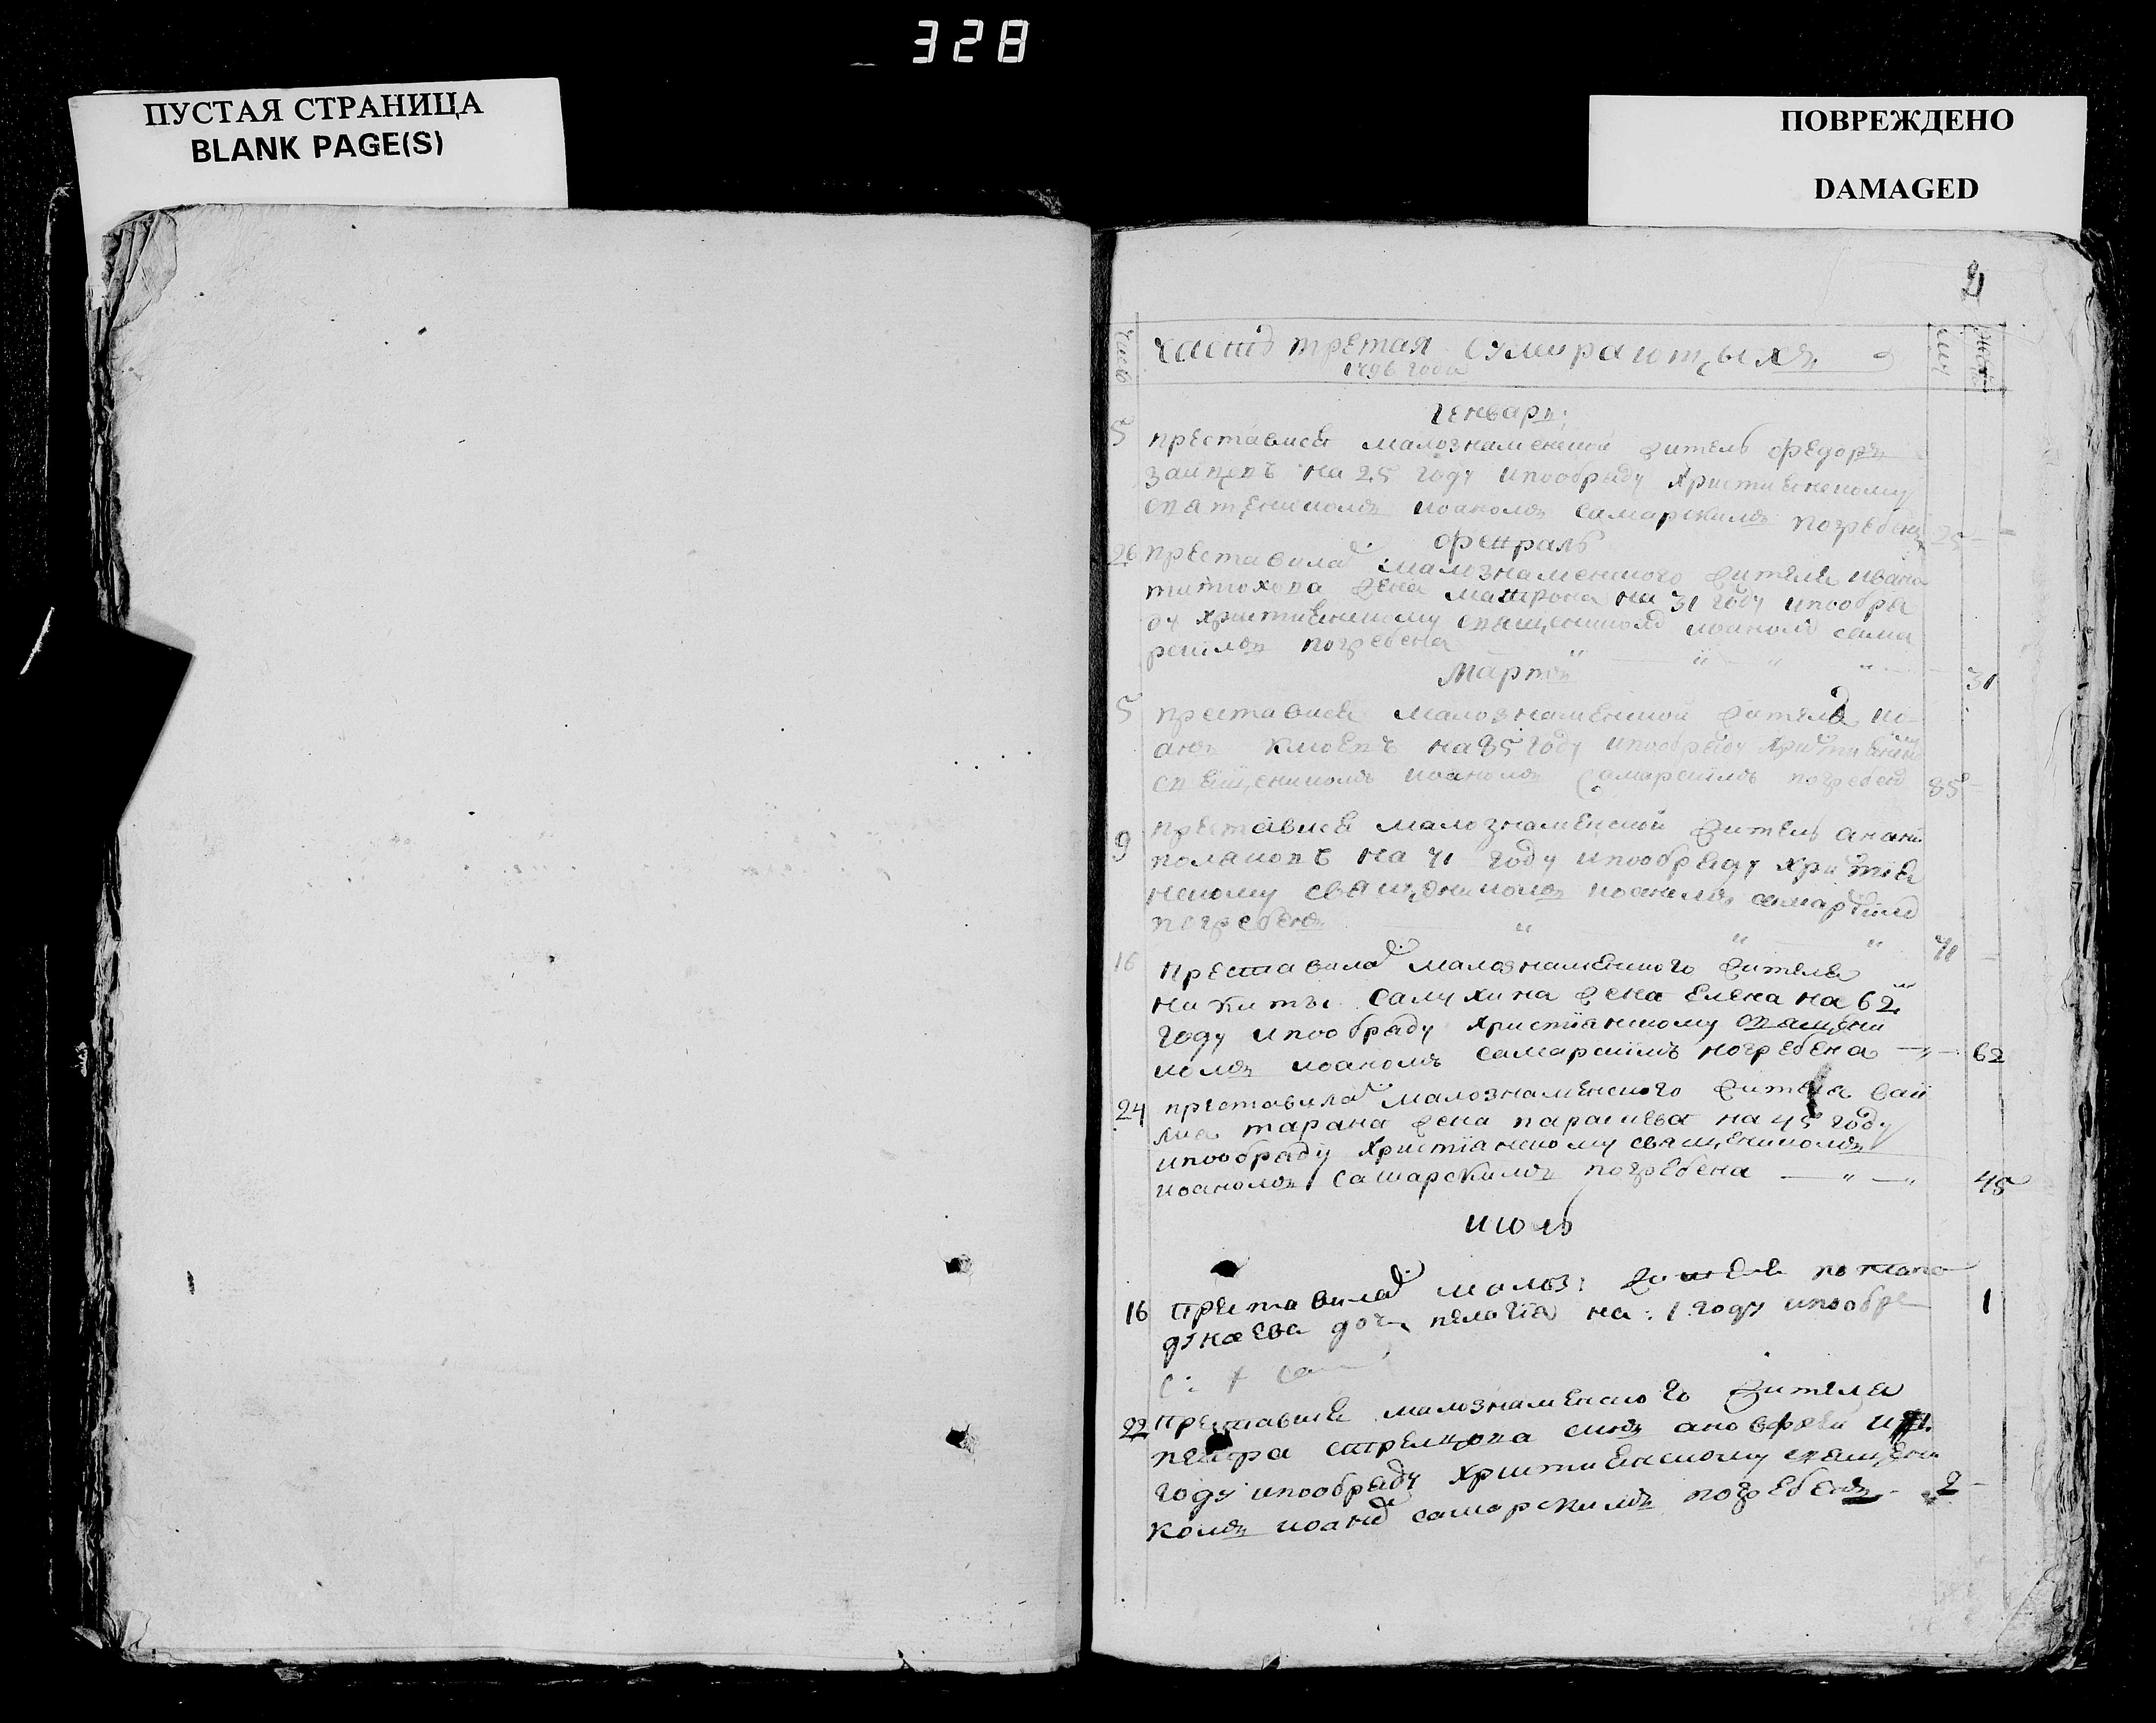 328
ПУСТАЯ СТРАНИЦА
BLANK PAGE(S)
ПОВРЕЖДЕНО
DAMAGED
2
часть третая Оумирающыхъ
1796 года
Генварь
5 преставися малознаменской житель федоръ
зайцевъ на 25 году и по обряду христианскому
священикомъ иоаномъ самарскимъ погребенъ 25
февраль
26 преставилас малознаменского жителя ивана
титюхова жена матрона на 31 году и по обря
ду христианскому священиком иоаном сама
рскимъ погребена
31
мартъ
5 преставися малознаменской житель ио
анъ на 85 году и по обряду христианскому
священикомъ иоаномъ самарскимъ погребен 85
9 преставися малознаменской житель анани
поляковъ на 71 году и по обряду христиа
нскому священикомъ иоаномъ самарским
погребенъ
71
16 преставилас малознаменского жителя
никиты салухина жена елена на 62
году и по обряду христіянскому священи
комъ иоаномъ самарскимъ погребена 62
24 преставилас малознаменского жителя
тарана жена параскева на 45 году
и по обряду христіанскому священикомъ
иоаномъ самарскимъ погребена 45
июль
16 преставилас малоз: жителя потапа
дунаева дочь пелагіа на : 1 году и по обря 1
с: х сам
22 преставися малознаменского жителя
петра стрелцова синъ
году и по обряду христианскому священи
комъ иоаном самарскимъ погребенъ 2